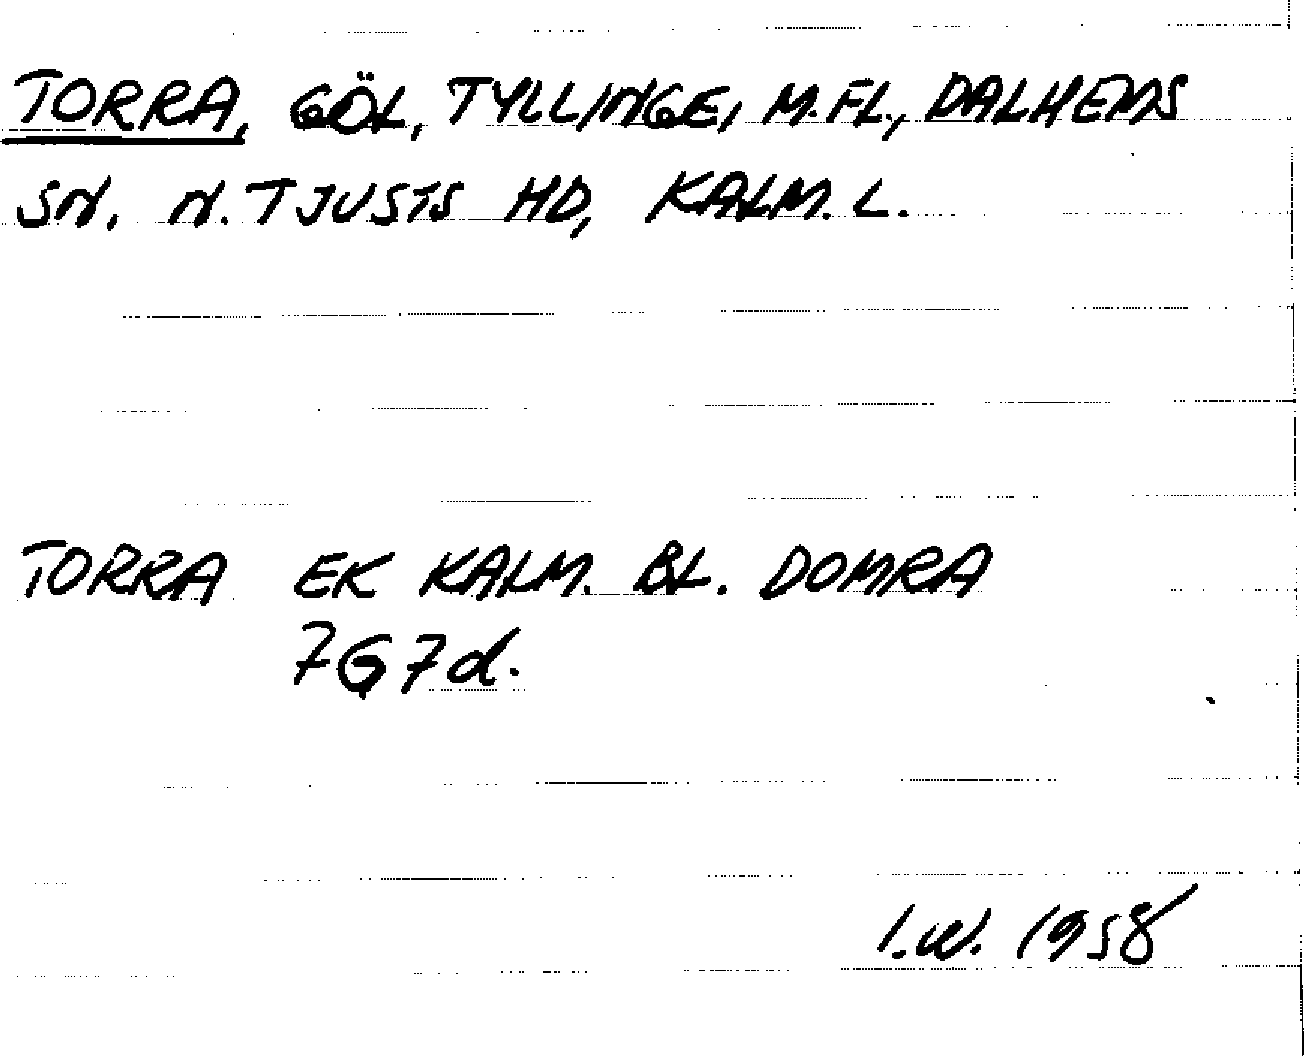 TORRA, GÖL, TYLLINGE, M.FL., DALHEMS
SN. N. TJUSTS HD, KALM. L.
TORRA EK KALM. BL. DOMRA
7G7d.
I.W. 1958